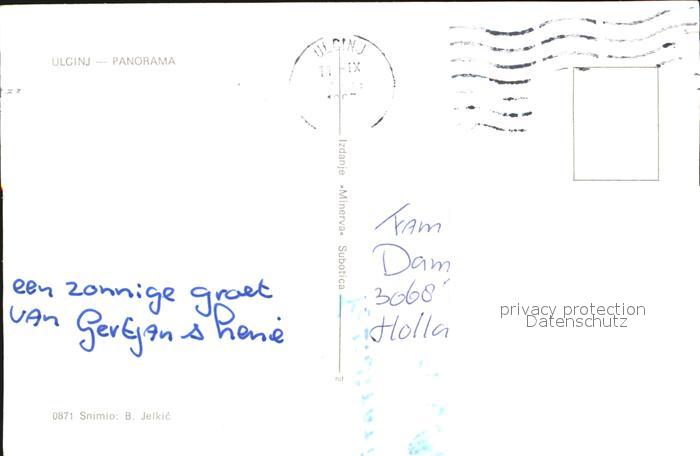 ULCINJ — PANORAMA
ULCINJ
IX
Izdanje »Minerva« Subotica
een zonnige groet
van Gertjan & Henie
Fam
Dam
3068
Holla
privacy protection
Datenschutz
0871 Snimio: B. Jelkić